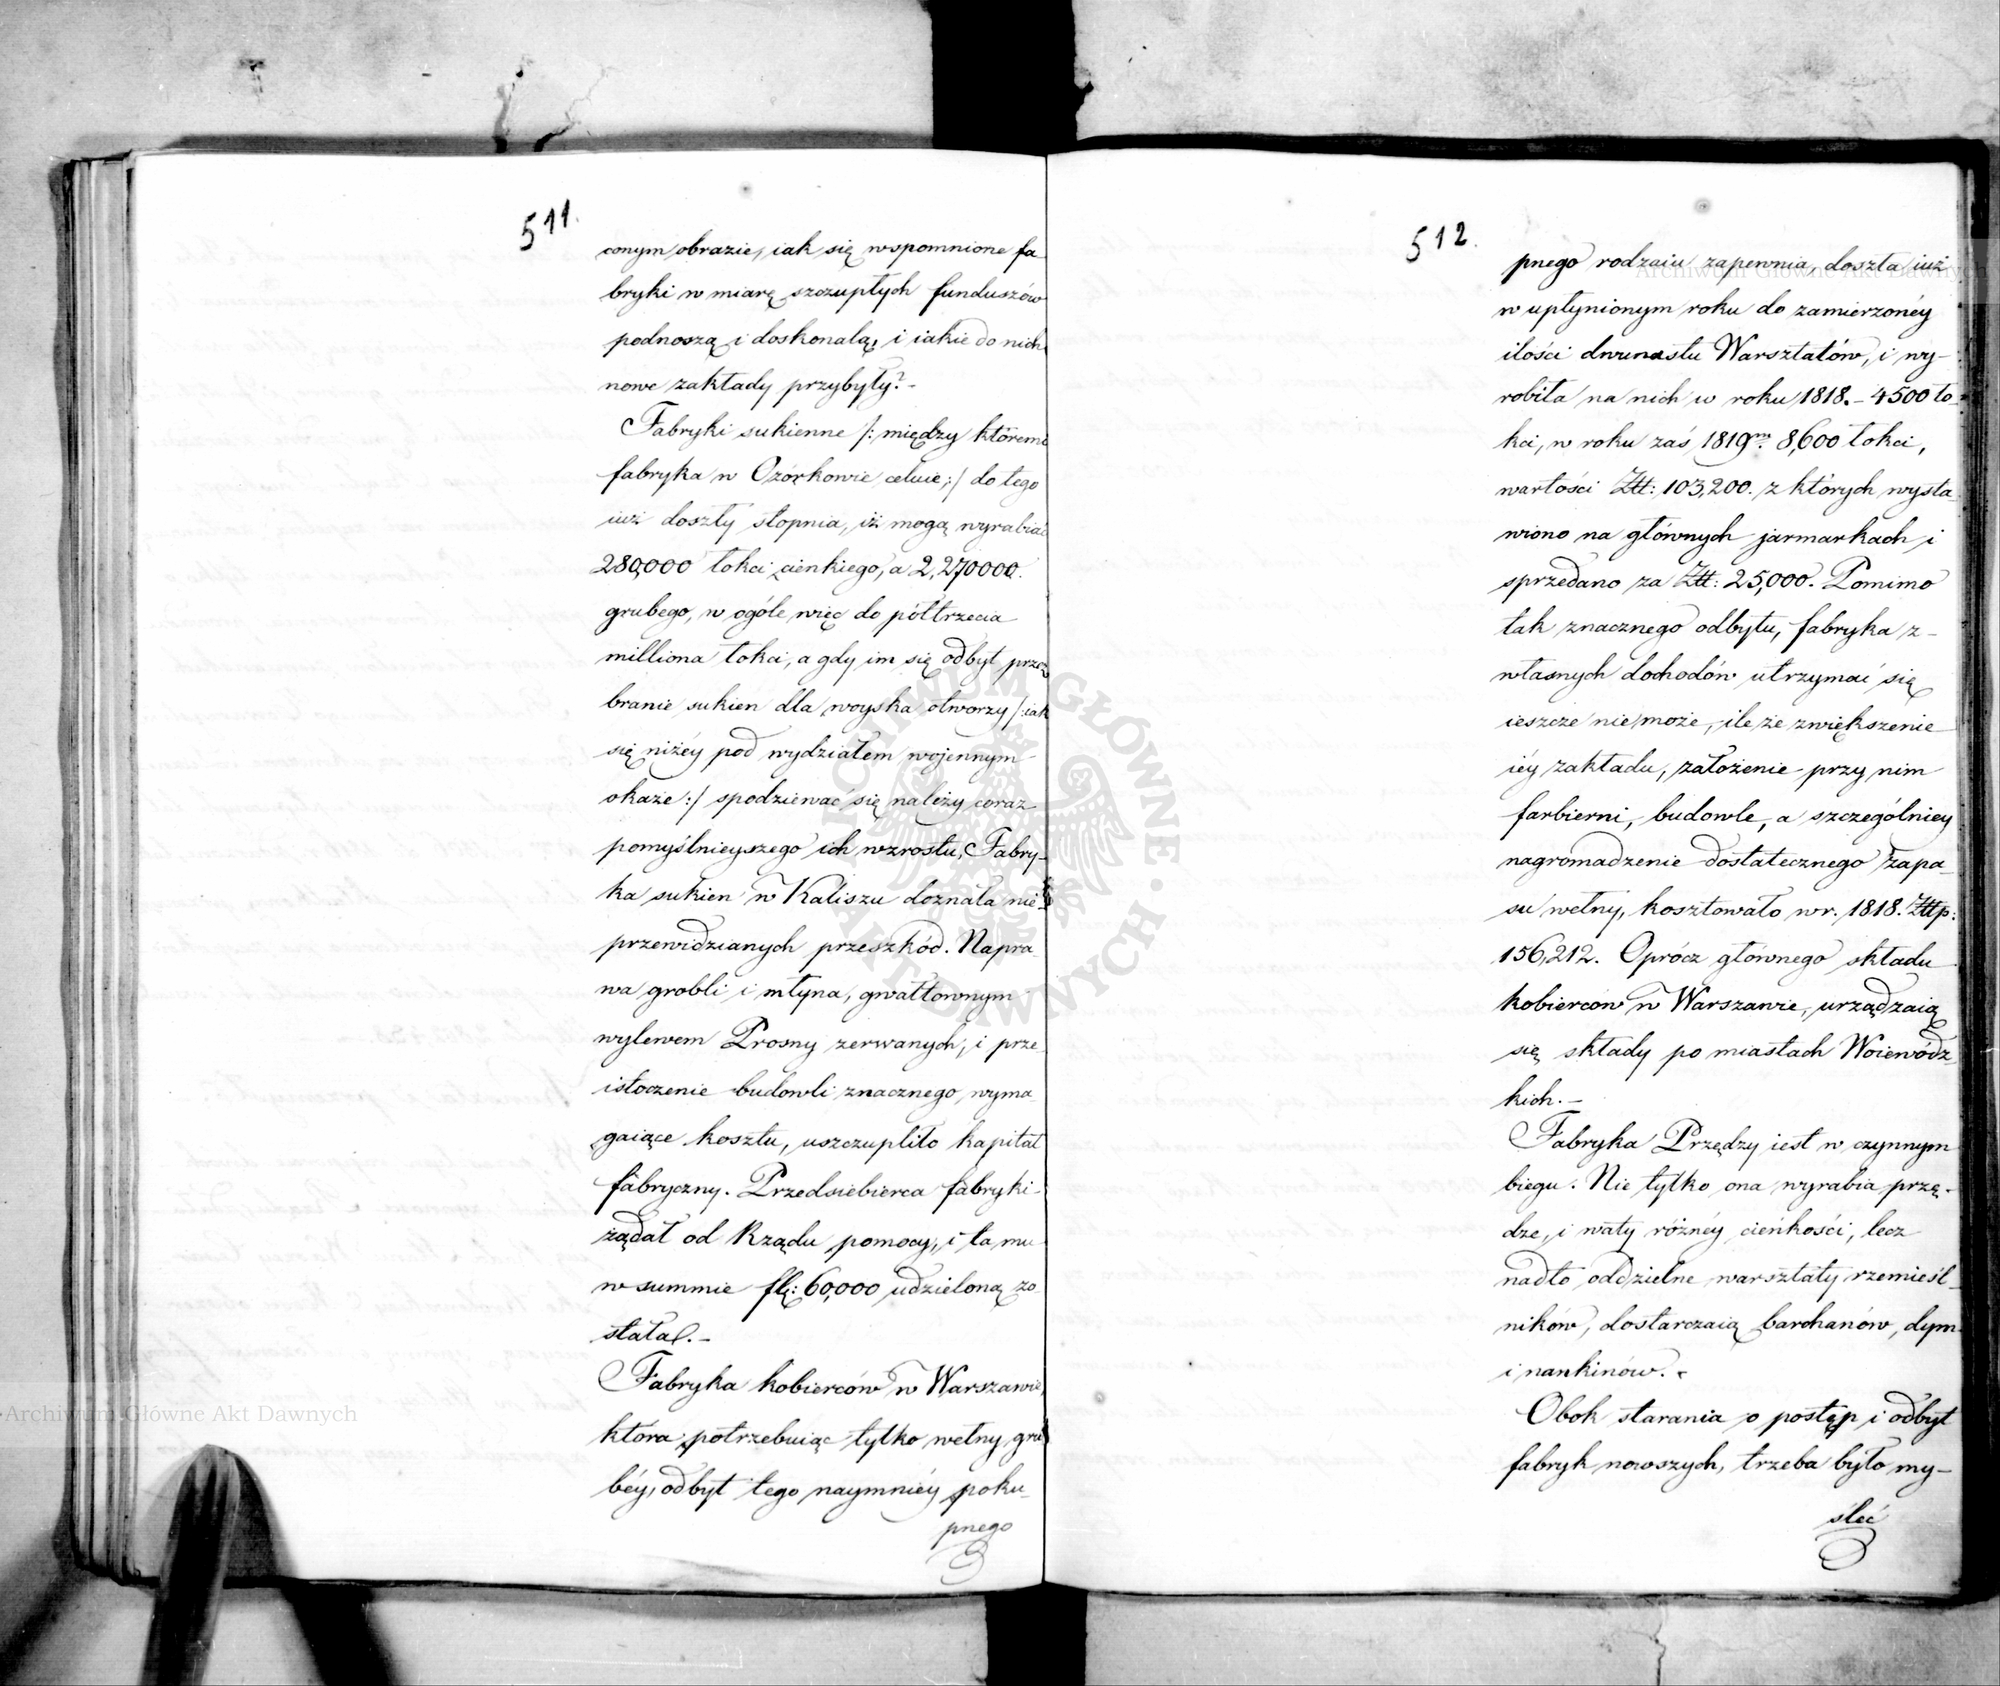 511.
conym obrazie, iak się wspomnione fa
bryki w miarę szczupłych funduszów
podnoszą i doskonalą, i iakie do nich
nowe zakłady przybyły? -
Fabryki sukienne /: między któremi
fabryka w Ozórkowie celuie; / do tego
iuż doszły stopnia, iż mogą wyrabiać
280,000 łokci cienkiego, a 2,270000.
grubego, w ogóle więc do półtrzecia
milliona łokci, a gdy im się odbyt przez
branie sukien dla woyska otworzy /: iak
się niżéy pod wydziałem wojennym
okaże :/ spodziewać się należy coraz
pomyślnieyszego ich wzrostu, Fabry-
ka sukien w Kaliszu doznała nie
przewidzianych przeszkód. Napra
wa grobli i młyna, gwałtownym
wylewem Prosny zerwanych, i prze
istoczenie budowli znacznego, wyma
gaiące kosztu, uszczupliło kapitał
fabryczny. Przedsiebierca fabryki -
żądał od Rządu pomocy, i ta mu
w summie fl: 60,000 udzieloną zo
stała. -
Fabryka kobierców w Warszawie,
która potrzebuiąc tylko wełny gru
béy, odbyt tego naymniéy poku-
pnego
512.
pnego rodzaiu zapewnia, doszła iuż
w upłynionym roku do zamierzonéy
ilości dwunastu Warsztatów, i wy-
robiła na nich w roku 1818. - 4500 ło-
kci, w roku zaś 1819m. 8,600 łokci,
wartości Złt: 103,200. z których wysta
wiono na głównych jarmarkach i
sprzedano za Złt: 25,000. Pomimo
tak znacznego odbytu, fabryka z -
własnych dochodów utrzymać się
ieszcze nie może, ile że zwiększenie
iéy zakładu, założenie przy nim
farbierni, budowle, a szczególniey
nagromadzenie dostatecznego zapa
su wełny, kosztowało w r. 1818. Złtp:
156,212. Oprócz głównego składu
kobierców w Warszawie, urządzaią
się składy po miastach Woiewódz-
kich. -
Fabryka Przędzy iest w czynnym
biegu. Nie tylko ona wyrabia przę-
dze, i waty różnéy cieńkości, lecz
nadto oddzielne warsztaty rzemieśl-
ników, dostarczaią barchanów, dym
i nankinów. -
Obok starania o postęp i odbyt
fabryk nowszych, trzeba było my-
śleć
Archiwum Główne Akt Dawnych
Archiwum Główne Akt Dawnych
ARCHIWUM GŁÓWNE AKT DAWNYCH